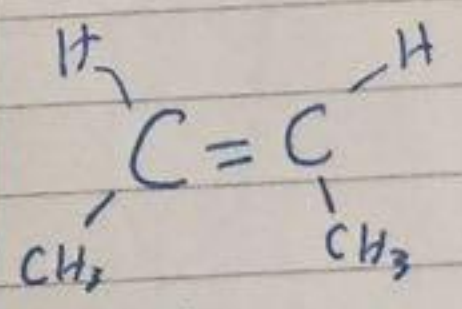 H H
C = C
CH₃ CH₃